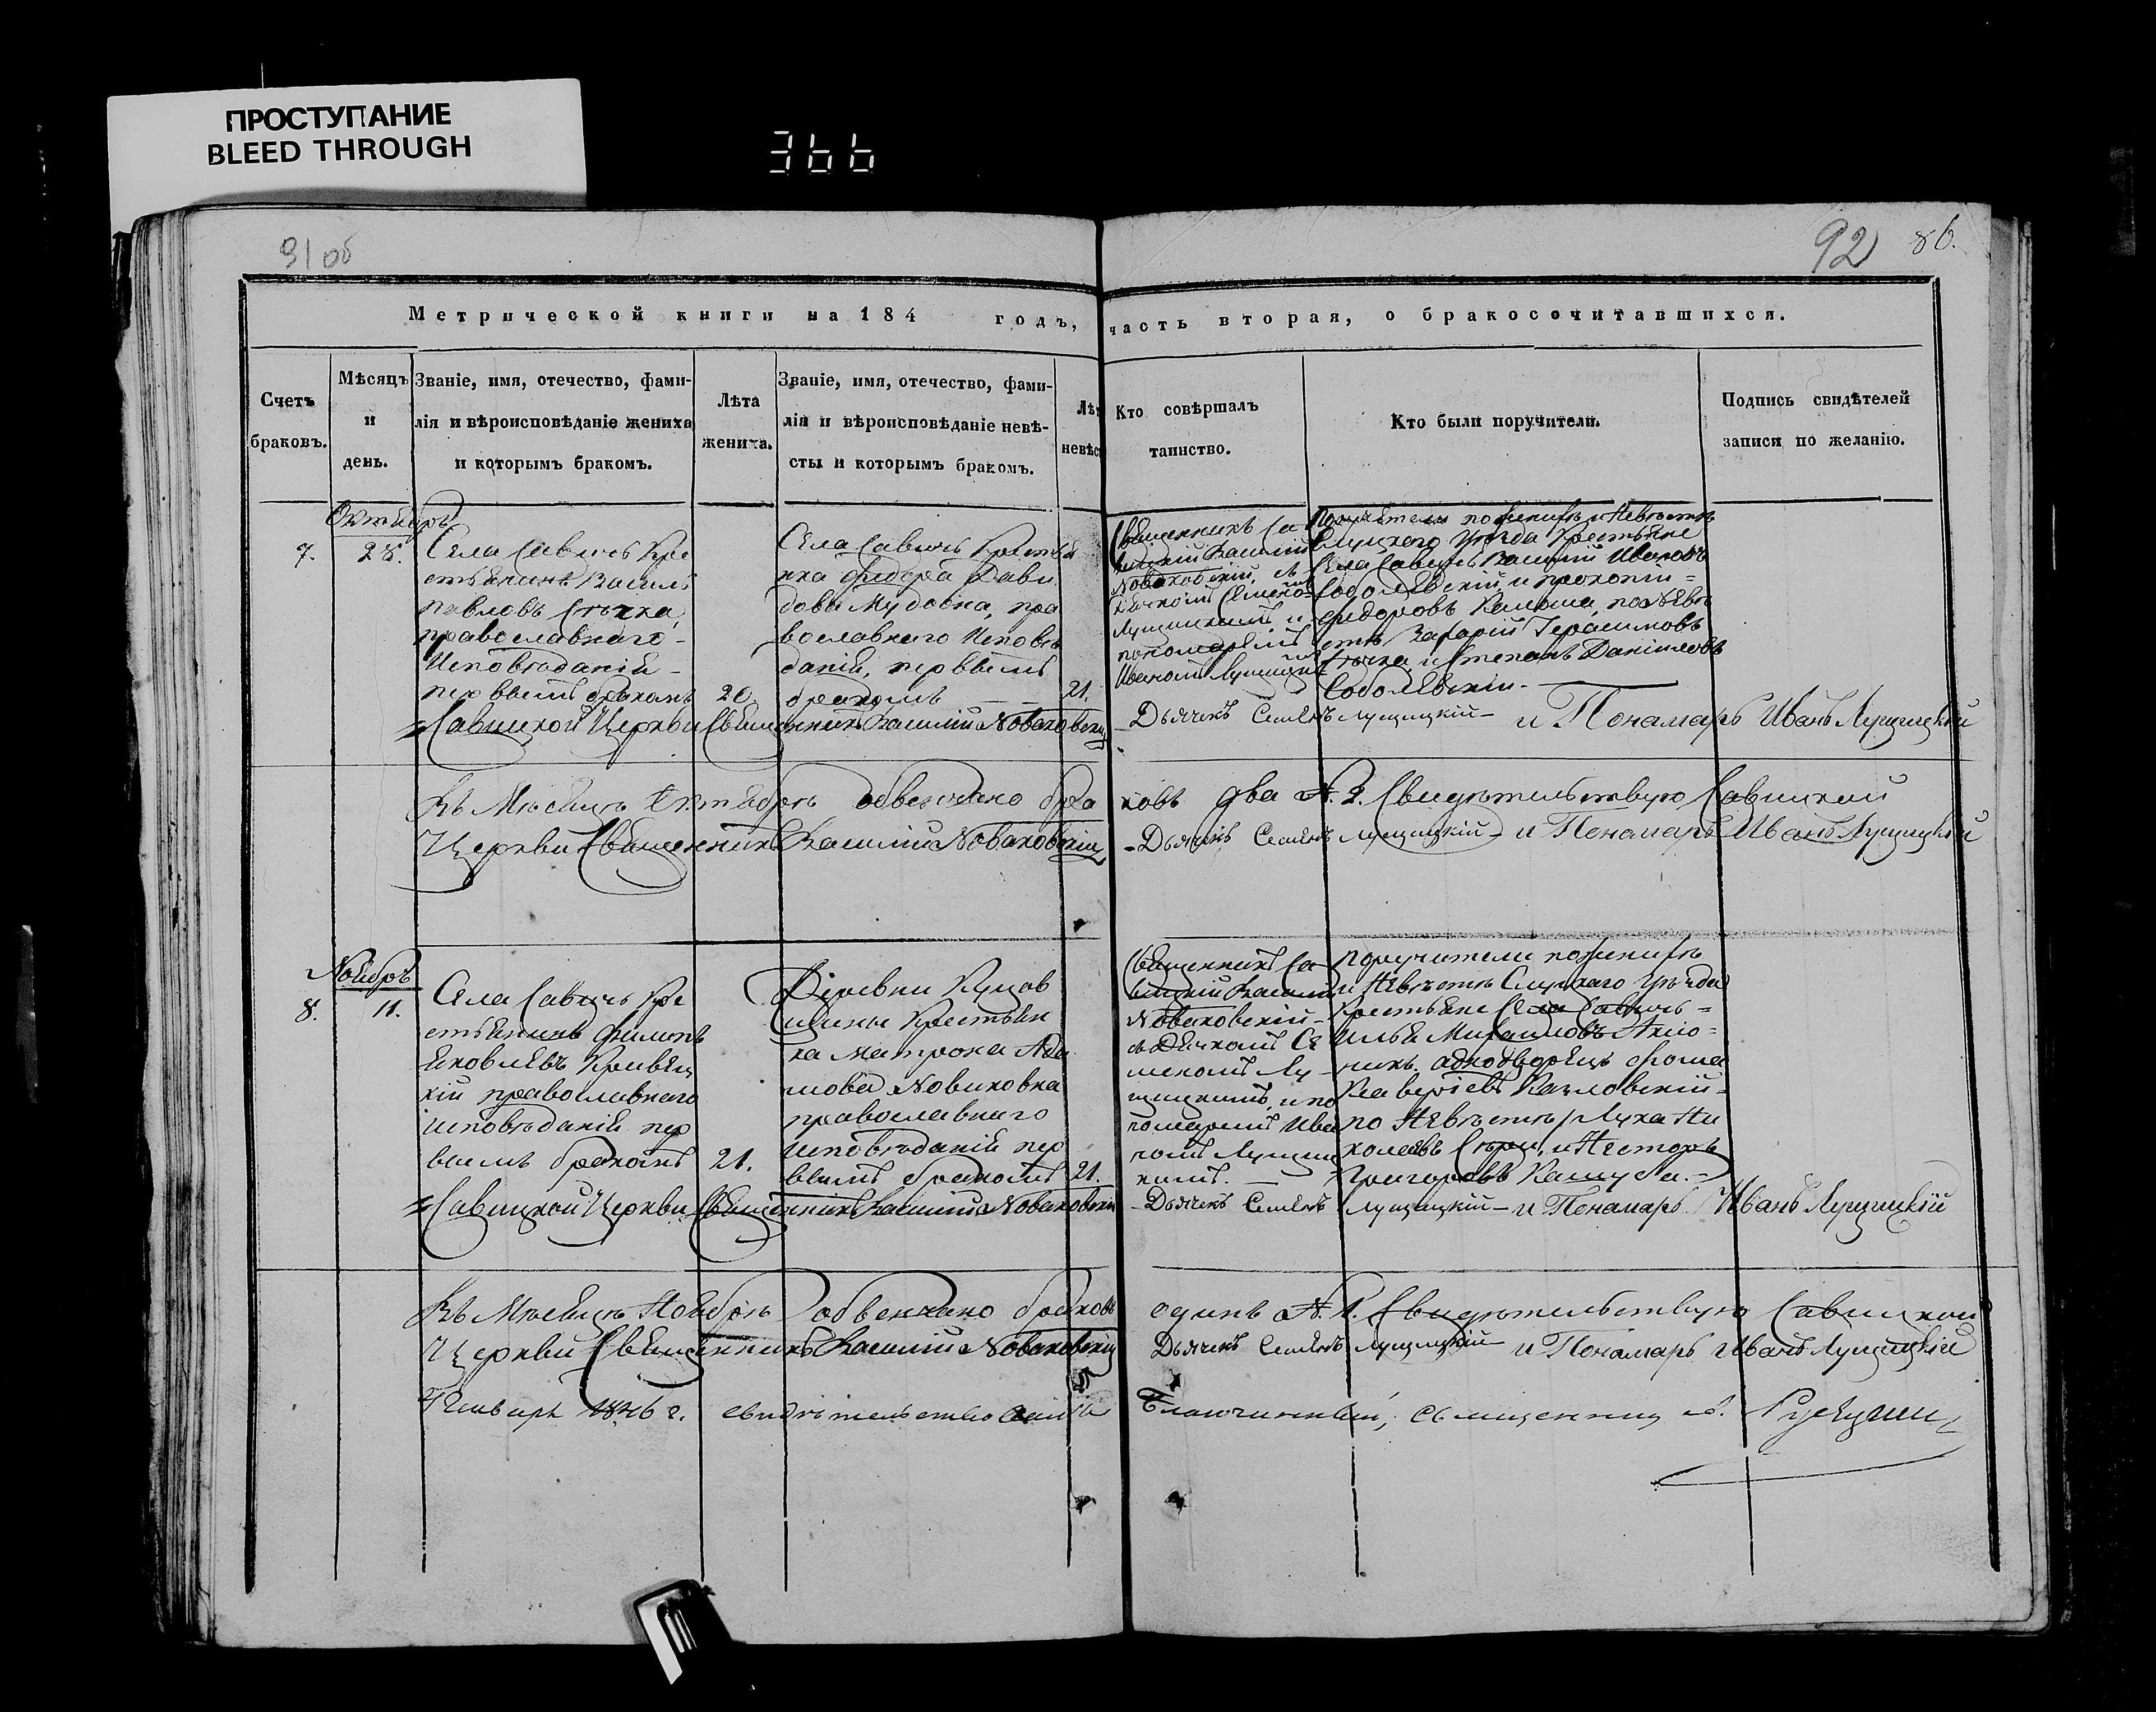 ПРОСТУПАНИЕ
BLEED THROUGH
366
91 об
92 86.
Метрической книги на 184 годъ, часть вторая, о бракосочитавшихся.
Счетъ браковъ.
Мѣсяцъ и день.
Званіе, имя, отечество, фами-
лія и вѣроисповѣданіе жениха
и которымъ бракомъ.
Лѣта жениха.
Званіе, имя, отечество, фами-
лія и вѣроисповѣданіе невѣ-
сты и которымъ бракомъ.
Лѣт
невѣс
Кто совѣршалъ
таинство.
Кто были поручители.
Подпись свидѣтелей
записи по желанію.
Октябрь
7.
28.
Села Савичь Кре
стьянинъ Василь
Павловъ
православнаго
Исповѣданія
первымъ бракомъ
20.
Села Савичь Крестьян
ка Федора Дави
дова Мудовна, пра
вославнаго Исповѣ
данія, первымъ
бракомъ
21.
Священникъ Са
вицкій Василій
Новаковскій, съ
Дячкомъ Семено
Лущицкимъ и
пономаремъ
Иваномъ Лущицкимъ
Поручители по женихѣ и Невѣстѣ
Слуцкого Уѣзда Крестьяне
Села Савичь Василій Ивановъ
Соболевскій и Прокопій
Федоровъ Калоша, по Невѣ
стѣ Захарій Герасимовъ
и Степанъ Даніиловъ
Соболевскій
Савицкой Церкви Священникъ Василій Новаковскій
Дьячекъ Семенъ Лущицкій и Понамарь Иванъ Лущицкій
Въ Мѣсяцѣ Октябрѣ обвенчано бра
ковъ два N. 2. Свидѣтельствую Савицкой
Церкви Священникъ Василій Новаковскій
Дьячекъ Семенъ Лущицкій и Понамарь Иванъ Лущицкій
Ноябрь
8.
11.
Села Савичь Кре
стьянинъ Филипъ
Яковлевъ Кривец
кій православнаго
исповѣданія пер
вымъ бракомъ
21.
Деревни Купов
Крестьян
ка Матрона Ада
мова Новиковна
православнаго
исповѣданія пер
вымъ бракомъ
21.
Священникъ Са
вицкій Василій
Новаковскій
съ Дячкомъ Се
меномъ Лу
щицкимъ, и по
номаремъ Ива
номъ Лущиц
кимъ.
Поручители по женихѣ
и Невѣстѣ Слуцкаго Уѣзда
Крестьяне Села Савичь
Илья Михаиловъ
однодворецъ Фома
Ксаверіевъ
по Невѣстѣ Лука Ни
колаевъ и Несторъ
Григоровъ
Савицкой Церкви Священникъ Василій Новаковскій
Дьячекъ Семенъ Лущицкій и Понамарь Иванъ Лущицкій
Въ Мѣсяцѣ Ноябрѣ обвенчано браковъ
одинъ N. 1. Свидѣтельствую Савицкой
Церкви Священникъ Василій Новаковскій
Дьячекъ Семенъ Лущицкій и Понамарь Иванъ Лущицкій
Генваря 1846 г. свидѣтельствовалъ
Благочинный, священник